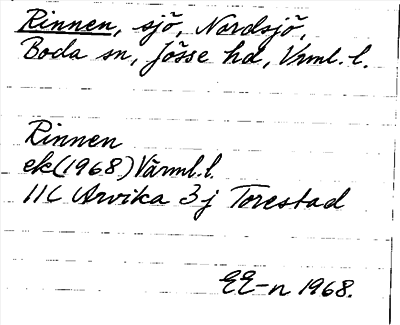 Rinnen, sjö, Nordsjö,
Boda sn, Jösse hd, Vrml. l.
Rinnen
ek (1968) Värml. l.
11C Arvika 3j Torestad
EE-n 1968.